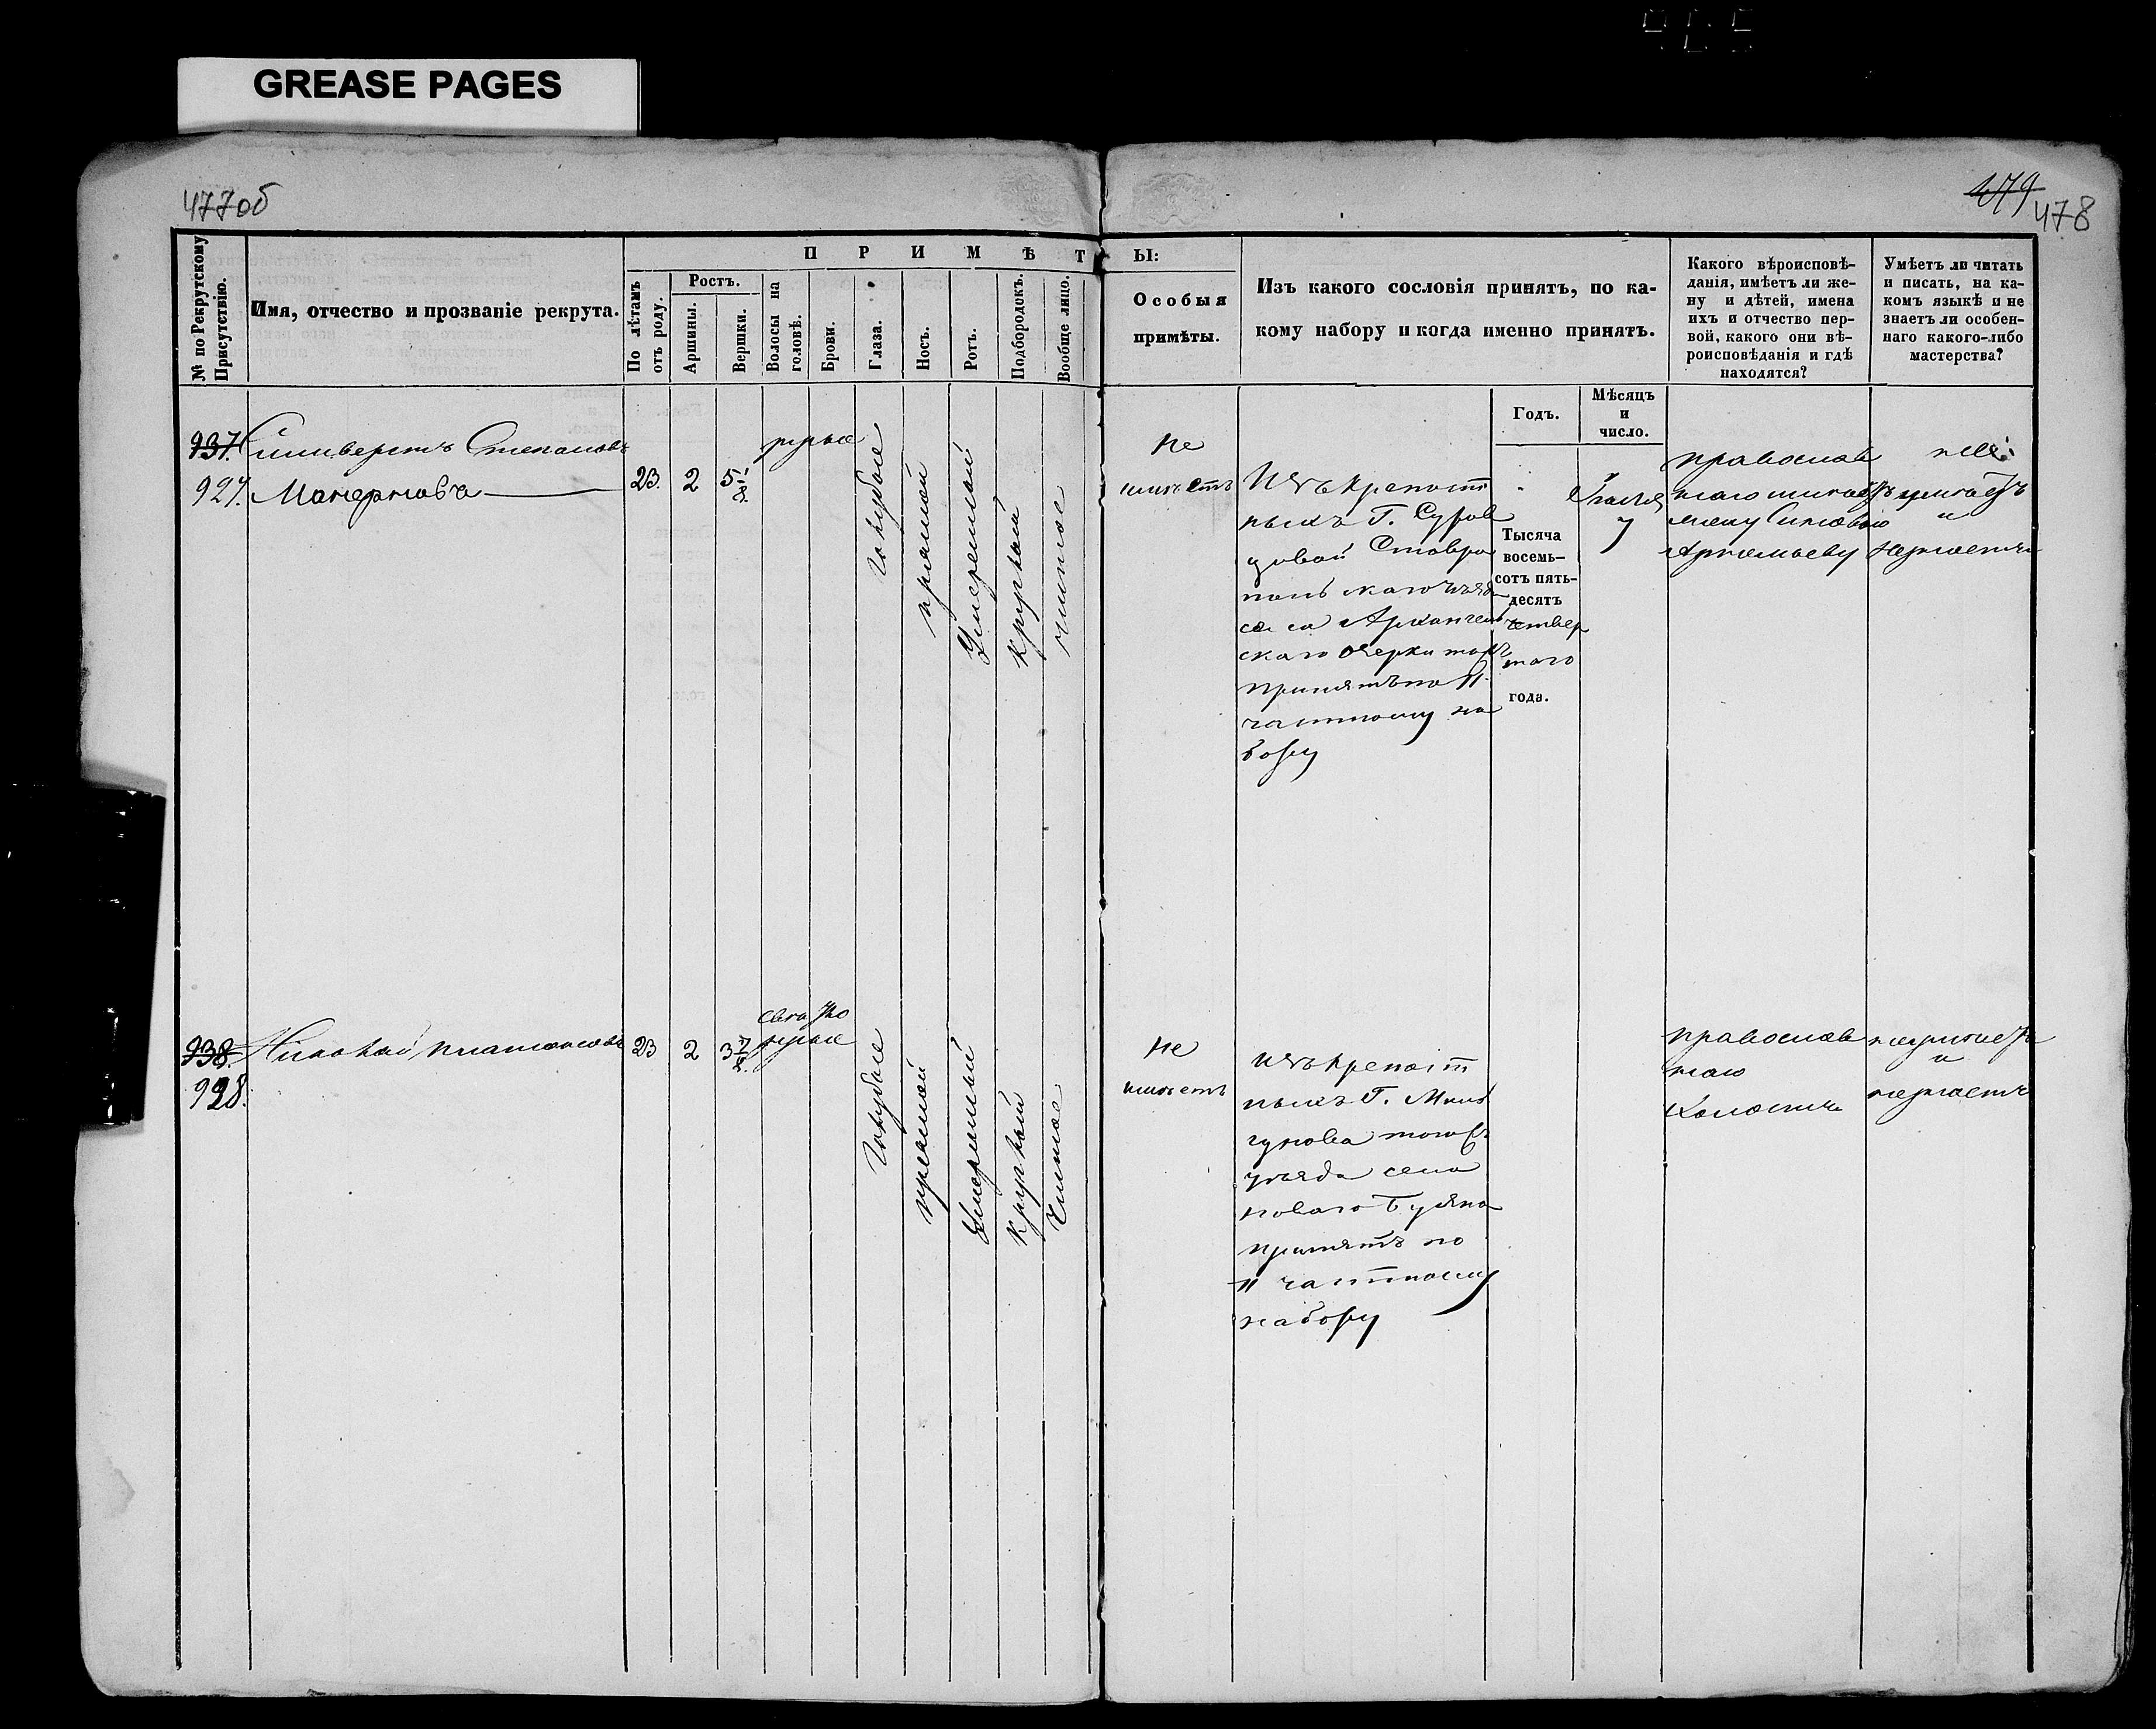 GREASE PAGES
477об
479
478
№ по Рекрутскому Присутствію.
Имя, отчество и прозваніе рекрута.
ПРИМѢТЫ:
По лѣтамъ отъ роду.
Ростъ.
Аршины.
Вершки.
Волосы на головѣ.
Брови.
Глаза.
Носъ.
Ротъ.
Подбородокъ.
Вообще лицо.
Особыя
примѣты.
Изъ какого сословія принятъ, по ка-
кому набору и когда именно принятъ.
Какого вѣроисповѣ-
данія, имѣетъ ли же-
ну и дѣтей, имена
ихъ и отчество пер-
вой, какого они вѣ-
роисповѣданія и гдѣ
находятся?
Умѣетъ ли читать
и писать, на ка-
комъ языкѣ и не
знаетъ ли особен-
наго какого-либо
мастерства?
Годъ.
Мѣсяцъ
и
число.
937.
927.
Силиверстъ Степановъ
23.
2
5 1/8.
русые
голубые
прямой
умеренный
круглый
чистое
не
имѣетъ
Изъ крепост
ныхъ Г.
довой Ставро
польскаго уѣзда
села Архангель
скаго
принятъ по II
частному на
бору
Тысяча
восемь-
сотъ пять-
десятъ
четвер
таго
года.
7
православ
наго
жену
Артемьеву
и
незнаетъ
938.
928.
Николай Платоновъ
23
2
3 7/8.
светло
русые
голубые
прямой
умеренный
круглый
чистое
не
имѣетъ
Изъ крепост
ныхъ Г.
уѣзда села
новаго Буяна
принятъ по
II частному
набору
православ
наго
холостъ
и
незнаетъ